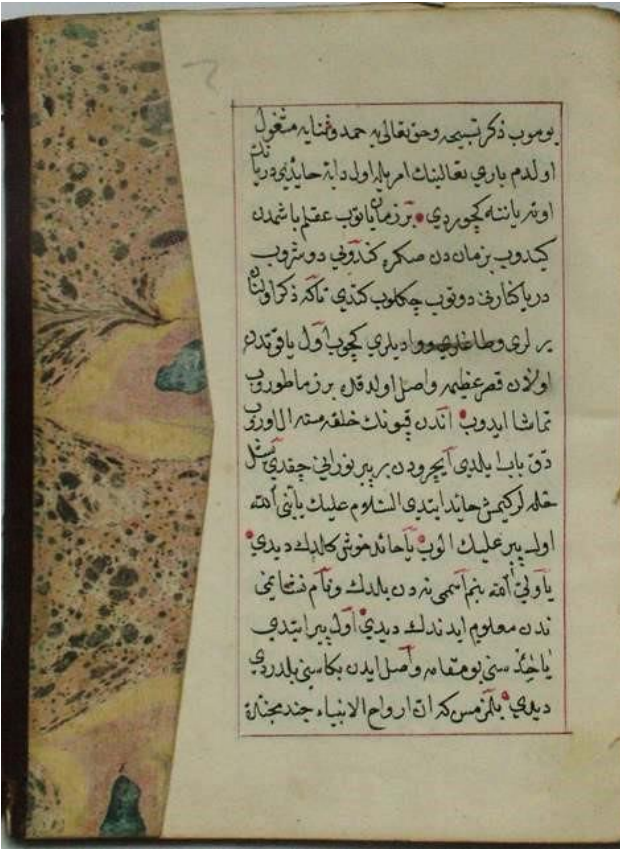 يوموب ذكر تسبيحه وحق تعالى يه حمد وثنايه مشغول
اولدم باري تعالينك امريله اول دابة حايذيى دريانك
اوته ياننه كچوردي برزمان ياتوب عقلم باشمدن
كيدوب بزمان دن صكره كندوني دوشروب
دريا كنارني دوتوب چكلوب كتدي تاكه ذكر اولنان
يرلري وطاغلري وواديلري كچوب اول ياقوتدن
اولان قصر عظيمه واصل اولدقده برزما طوروب
تماشا ايدوب اندن قپونك خلقه سنه ال اوروب
دق باب ايلدى ايچرودن بر پير نوراني چقدي يشل
حله لر كيمش حايذ ايتدى السلام عليك يا نبى الله
اول پير عليك الوب يا حائذ خوش كلدك ديدي
يا ولي الله بنم اسمى نه دن بلدك ونام نشانمى
ندن معلوم ايدندك ديدي اول پير ايتدي
يا حائذ سنى بو مقامه واصل ايدن بكا سني بلدردي
ديدي بلمزمس كه ان ارواح الانبياء جند مجندة